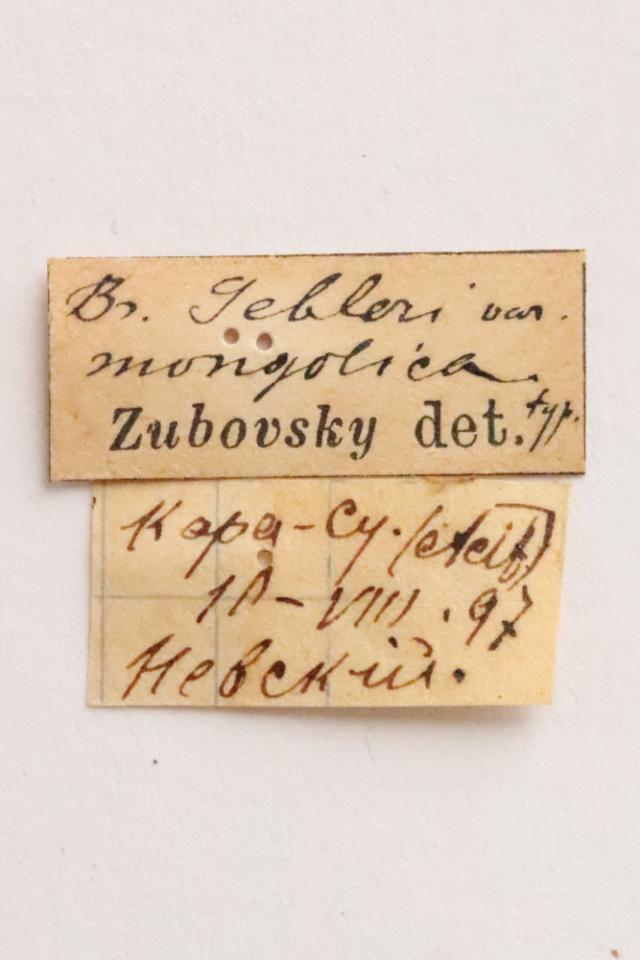 Br. Gebleri var.
mongolica
Zubovsky det. typ.
Кара-Су.
VIII.97
Невский.